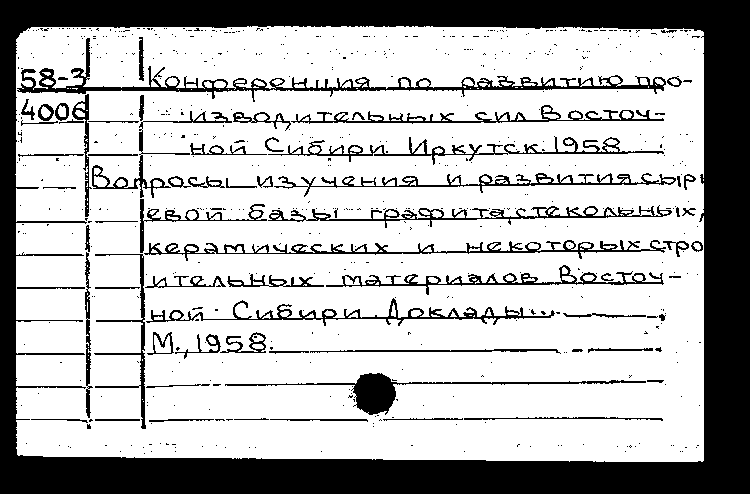 58-3 Конференция по развитию про-
4006 изводительных сил Восточ-
ной Сибири. Иркутск. 1958
Вопросы изучения и развития сырь
евой базы графита, стекольных,
керамических и некоторых стро
ительных материалов Восточ-
ной Сибири. Доклады...
М., 1958.